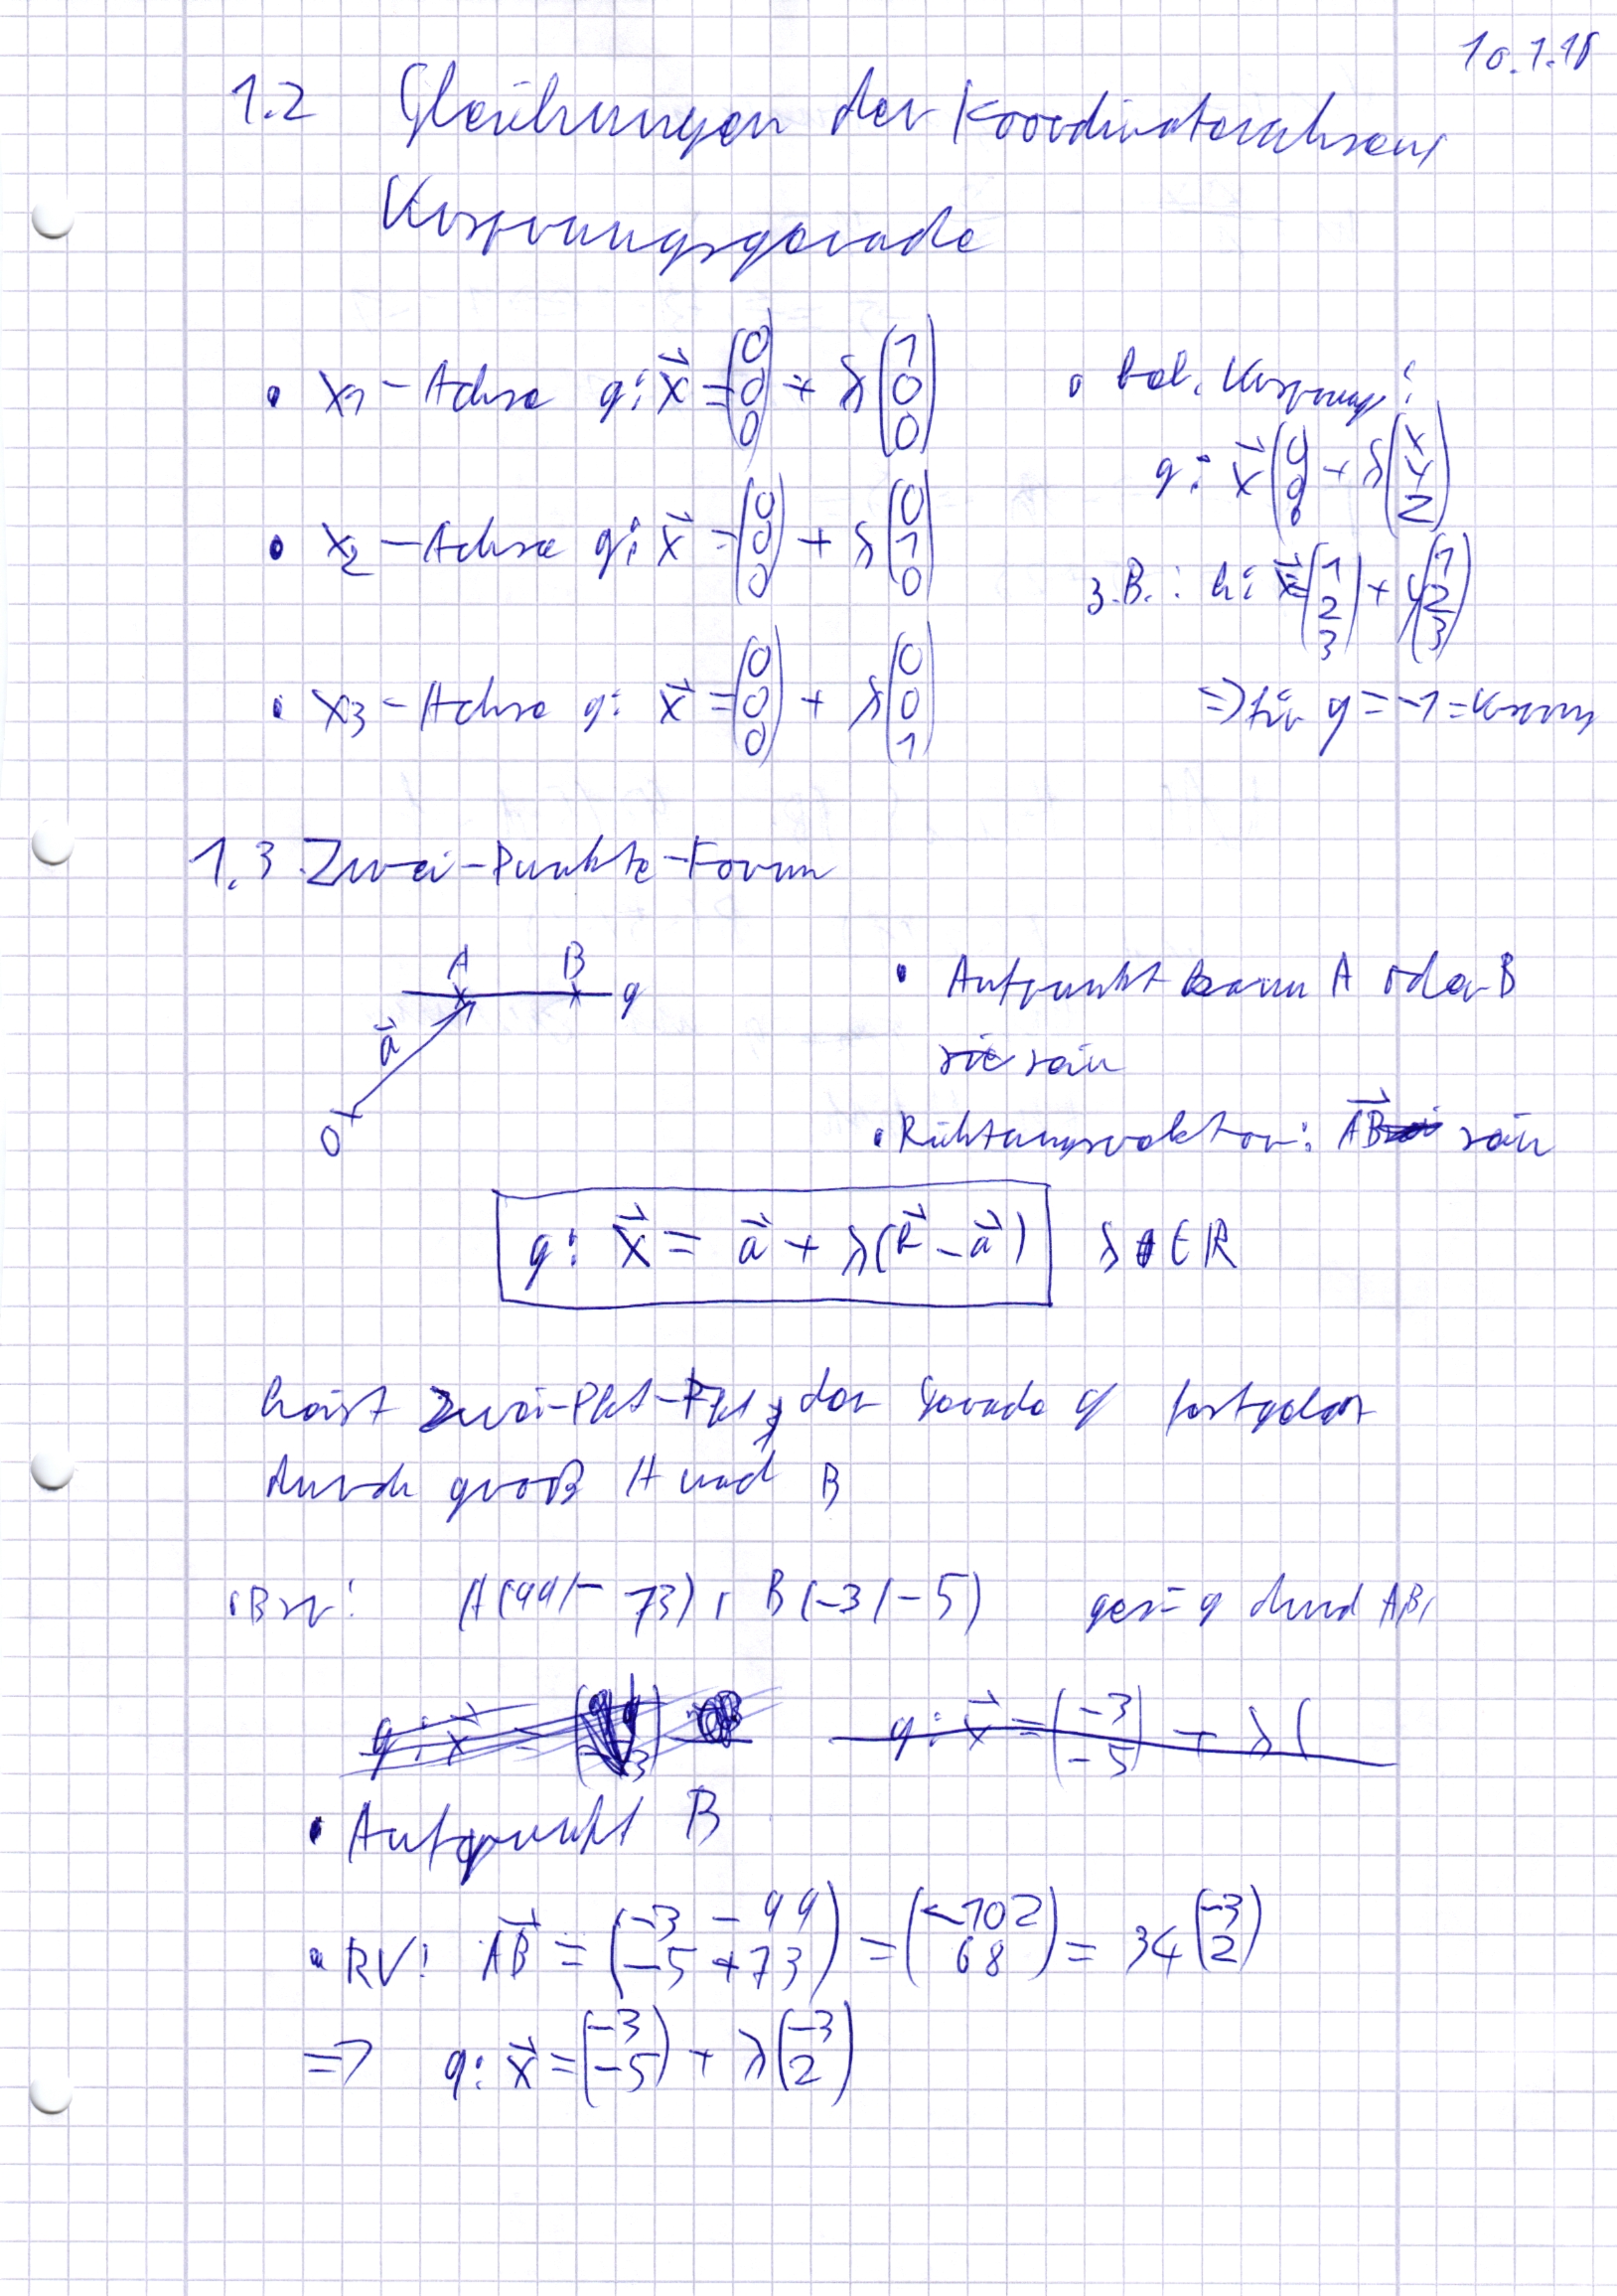 10.1.18
1.2 Gleichungen der Koordinatenachsen,
Ursprungsgerade
• x₁-Achse g: x⃗ = (0 0 0) + λ(1 0 0)
• x₂-Achse g: x⃗ = (0 0 0) + λ(0 1 0)
• x₃-Achse g: x⃗ = (0 0 0) + λ(0 0 1)
• bel. Ursprungs:
g: x⃗ (0 0 0) + λ(x y z)
z.B.: h: x⃗ = (1 2 3) + y(1 2 3)
=> für y = -1 =
1.3 Zwei-Punkte-Form
A B g
a⃗
O
• Aufpunkt kann A oder B
sein
• Richtungsvektor: A⃗B⃗ sein
g: x⃗ = a⃗ + λ( - a⃗) λ ∈ R
heist Zwei-Pkt- der Gerade g
durch groß A und B
• Bsp: A(99/-73), B(-3/-5) ges = g durch AB,
g: x⃗ = (-3 -5) + λ(
• Aufpunkt B
• RV: A⃗B⃗ = (-3 - 99 -5 + 73) = (-102 68) = 34(-3 2)
=> g: x⃗ = (-3 -5) + λ(-3 2)